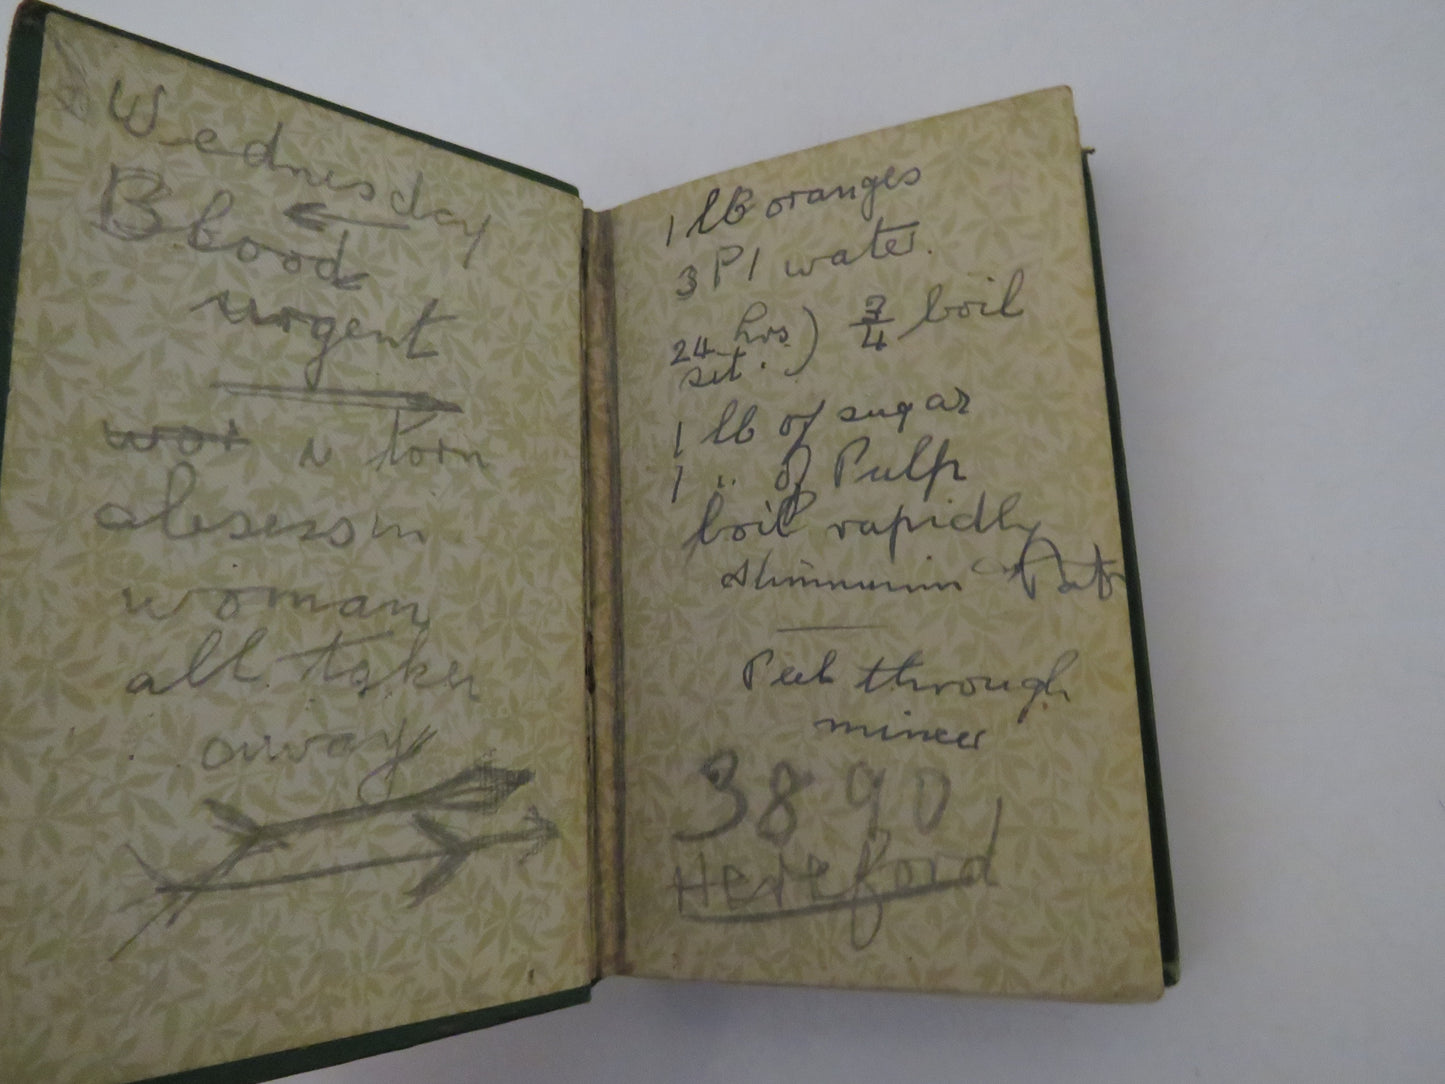 Wednesday
Blood
urgent
wor
woman
all taken
away
1 lb oranges
3 P1 water.
24 hrs) 3/4 boil
set.
1 lb of sugar
1 " of Pulp
boil rapidly
Peel through
mincer
3890
Hereford